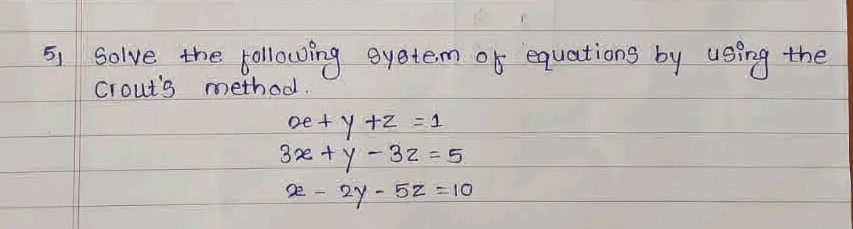 5) Solve the following system of equations by using the
Crout's method.
x + y + z = 1
3x + y - 3z = 5
x - 2y - 5z = 10